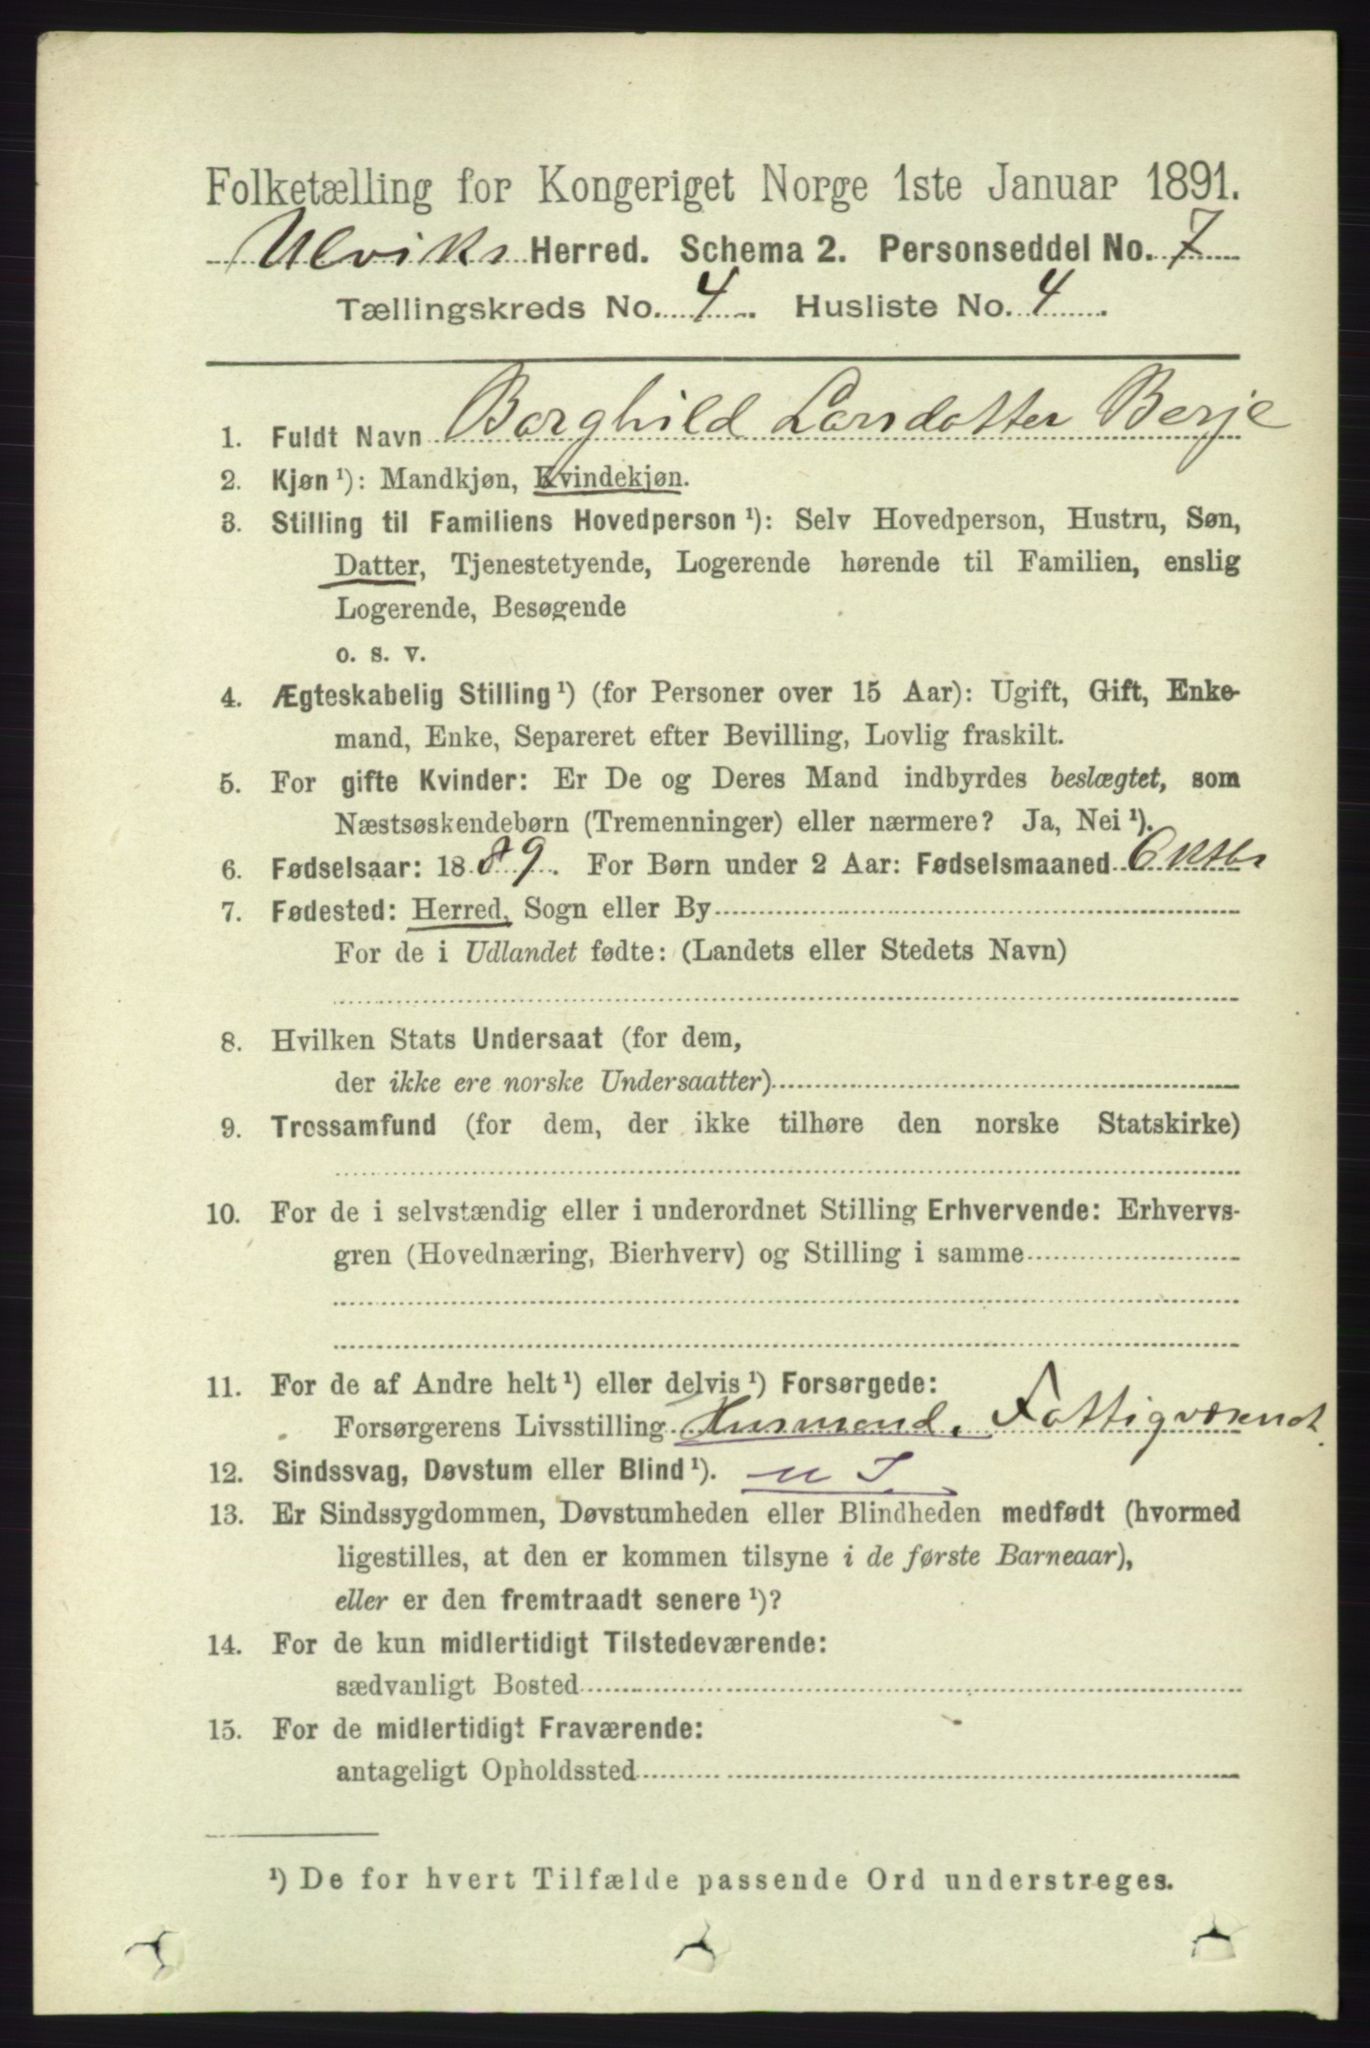 Folketælling for Kongeriget Norge 1ste Januar 1891.
Ulviks Herred. Schema 2. Personseddel No. 7
Tællingskreds No. 4. Husliste No. 4.
1. Fuldt Navn Borghild Larsdotter Berje
2. Kjøn ¹): Mandkjøn, Kvindekjøn.
3. Stilling til Familiens Hovedperson ¹): Selv Hovedperson, Hustru, Søn,
Datter, Tjenestetyende, Logerende hørende til Familien, enslig
Logerende, Besøgende
o. s. v.
4. Ægteskabelig Stilling ¹) (for Personer over 15 Aar): Ugift, Gift, Enke-
mand, Enke, Separeret efter Bevilling, Lovlig fraskilt.
5. For gifte Kvinder: Er De og Deres Mand indbyrdes beslægtet, som
Næstsøskendebørn (Tremenninger) eller nærmere? Ja, Nei ¹).
6. Fødselsaar: 1889. For Børn under 2 Aar: Fødselsmaaned Oktbr
7. Fødested: Herred, Sogn eller By
For de i Udlandet fødte: (Landets eller Stedets Navn)
8. Hvilken Stats Undersaat (for dem,
der ikke ere norske Undersaatter)
9. Trossamfund (for dem, der ikke tilhøre den norske Statskirke)
10. For de i selvstændig eller i underordnet Stilling Erhvervende: Erhvervs-
gren (Hovednæring, Bierhverv) og Stilling i samme
11. For de af Andre helt ¹) eller delvis ¹) Forsørgede:
Forsørgerens Livsstilling Husmand, Fattigvæsenet
12. Sindssvag, Døvstum eller Blind ¹).
13. Er Sindssygdommen, Døvstumheden eller Blindheden medfødt (hvormed
ligestilles, at den er kommen tilsyne i de første Barneaar),
eller er den fremtraadt senere ¹)?
14. For de kun midlertidigt Tilstedeværende:
sædvanligt Bosted
15. For de midlertidigt Fraværende:
antageligt Opholdssted
¹) De for hvert Tilfælde passende Ord understreges.